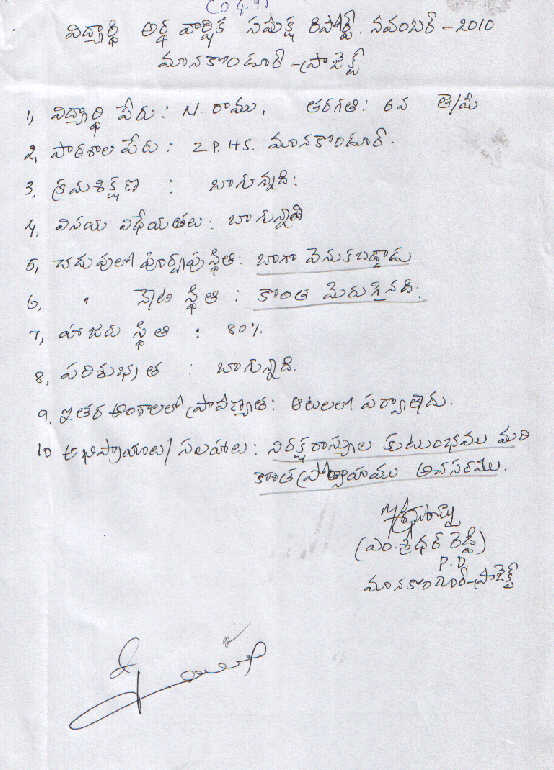 విద్యార్థి అర్థ వార్షిక సమీక్ష రిపోర్ట్ నవంబర్ - 2010
మానకొండూర్ - ప్రాజెక్ట్
1, విద్యార్థి పేరు : N. రాము, తరగతి : 6వ తె/మీ
2, పాఠశాల పేరు : Z.P.H.S. మానకొండూర్.
3, క్రమశిక్షణ : బాగున్నది.
4, వినయ విధేయతలు : బాగున్నది
5, చదువులో పూర్వపు స్థితి : బాగా వెనుకబడ్డాడు
6, " స్థితి : కొంత మెరుగైనది.
7, హాజరు స్థితి : 80%.
8, పరిశుభ్రత : బాగున్నది.
9. ఇతర అంశాలలో ప్రావీణ్యత : ఆటలలో పర్వాలేదు.
10 అభిప్రాయాలు/సలహాలు : నిరక్షరాస్యుల కుటుంబము మరి
కొంత ప్రోత్సాహము అవసరము.
(ఎం. శ్రీధర్ రెడ్డి)
P.D
మానకొండూర్ - ప్రాజెక్ట్